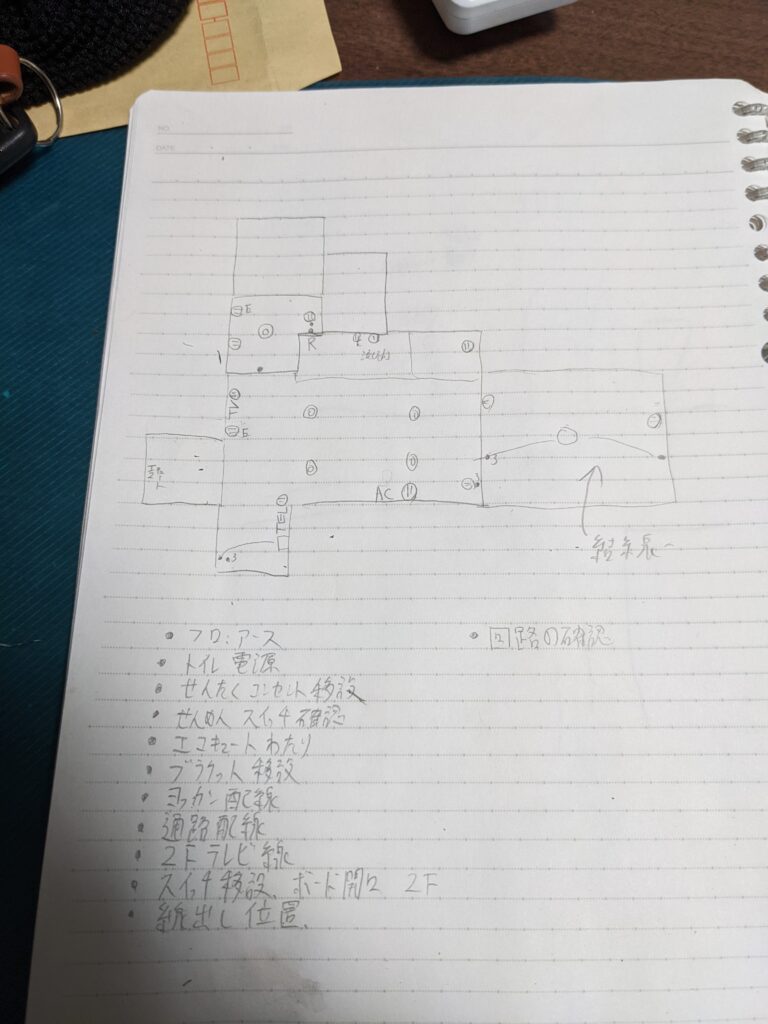 NO.
DATE
E
R
E
AC
TEL
3
3
・フロ:アース
・トイレ 電源
・せんたく コンセント移設
・せんめん スイッチ確認
・エコキュートわたり
・ブラケット移設
・ヨウカン配線
・通路配線
・2Fテレビ線
・スイッチ移設、ボード開口 2F
・線出し位置、
・回路の確認